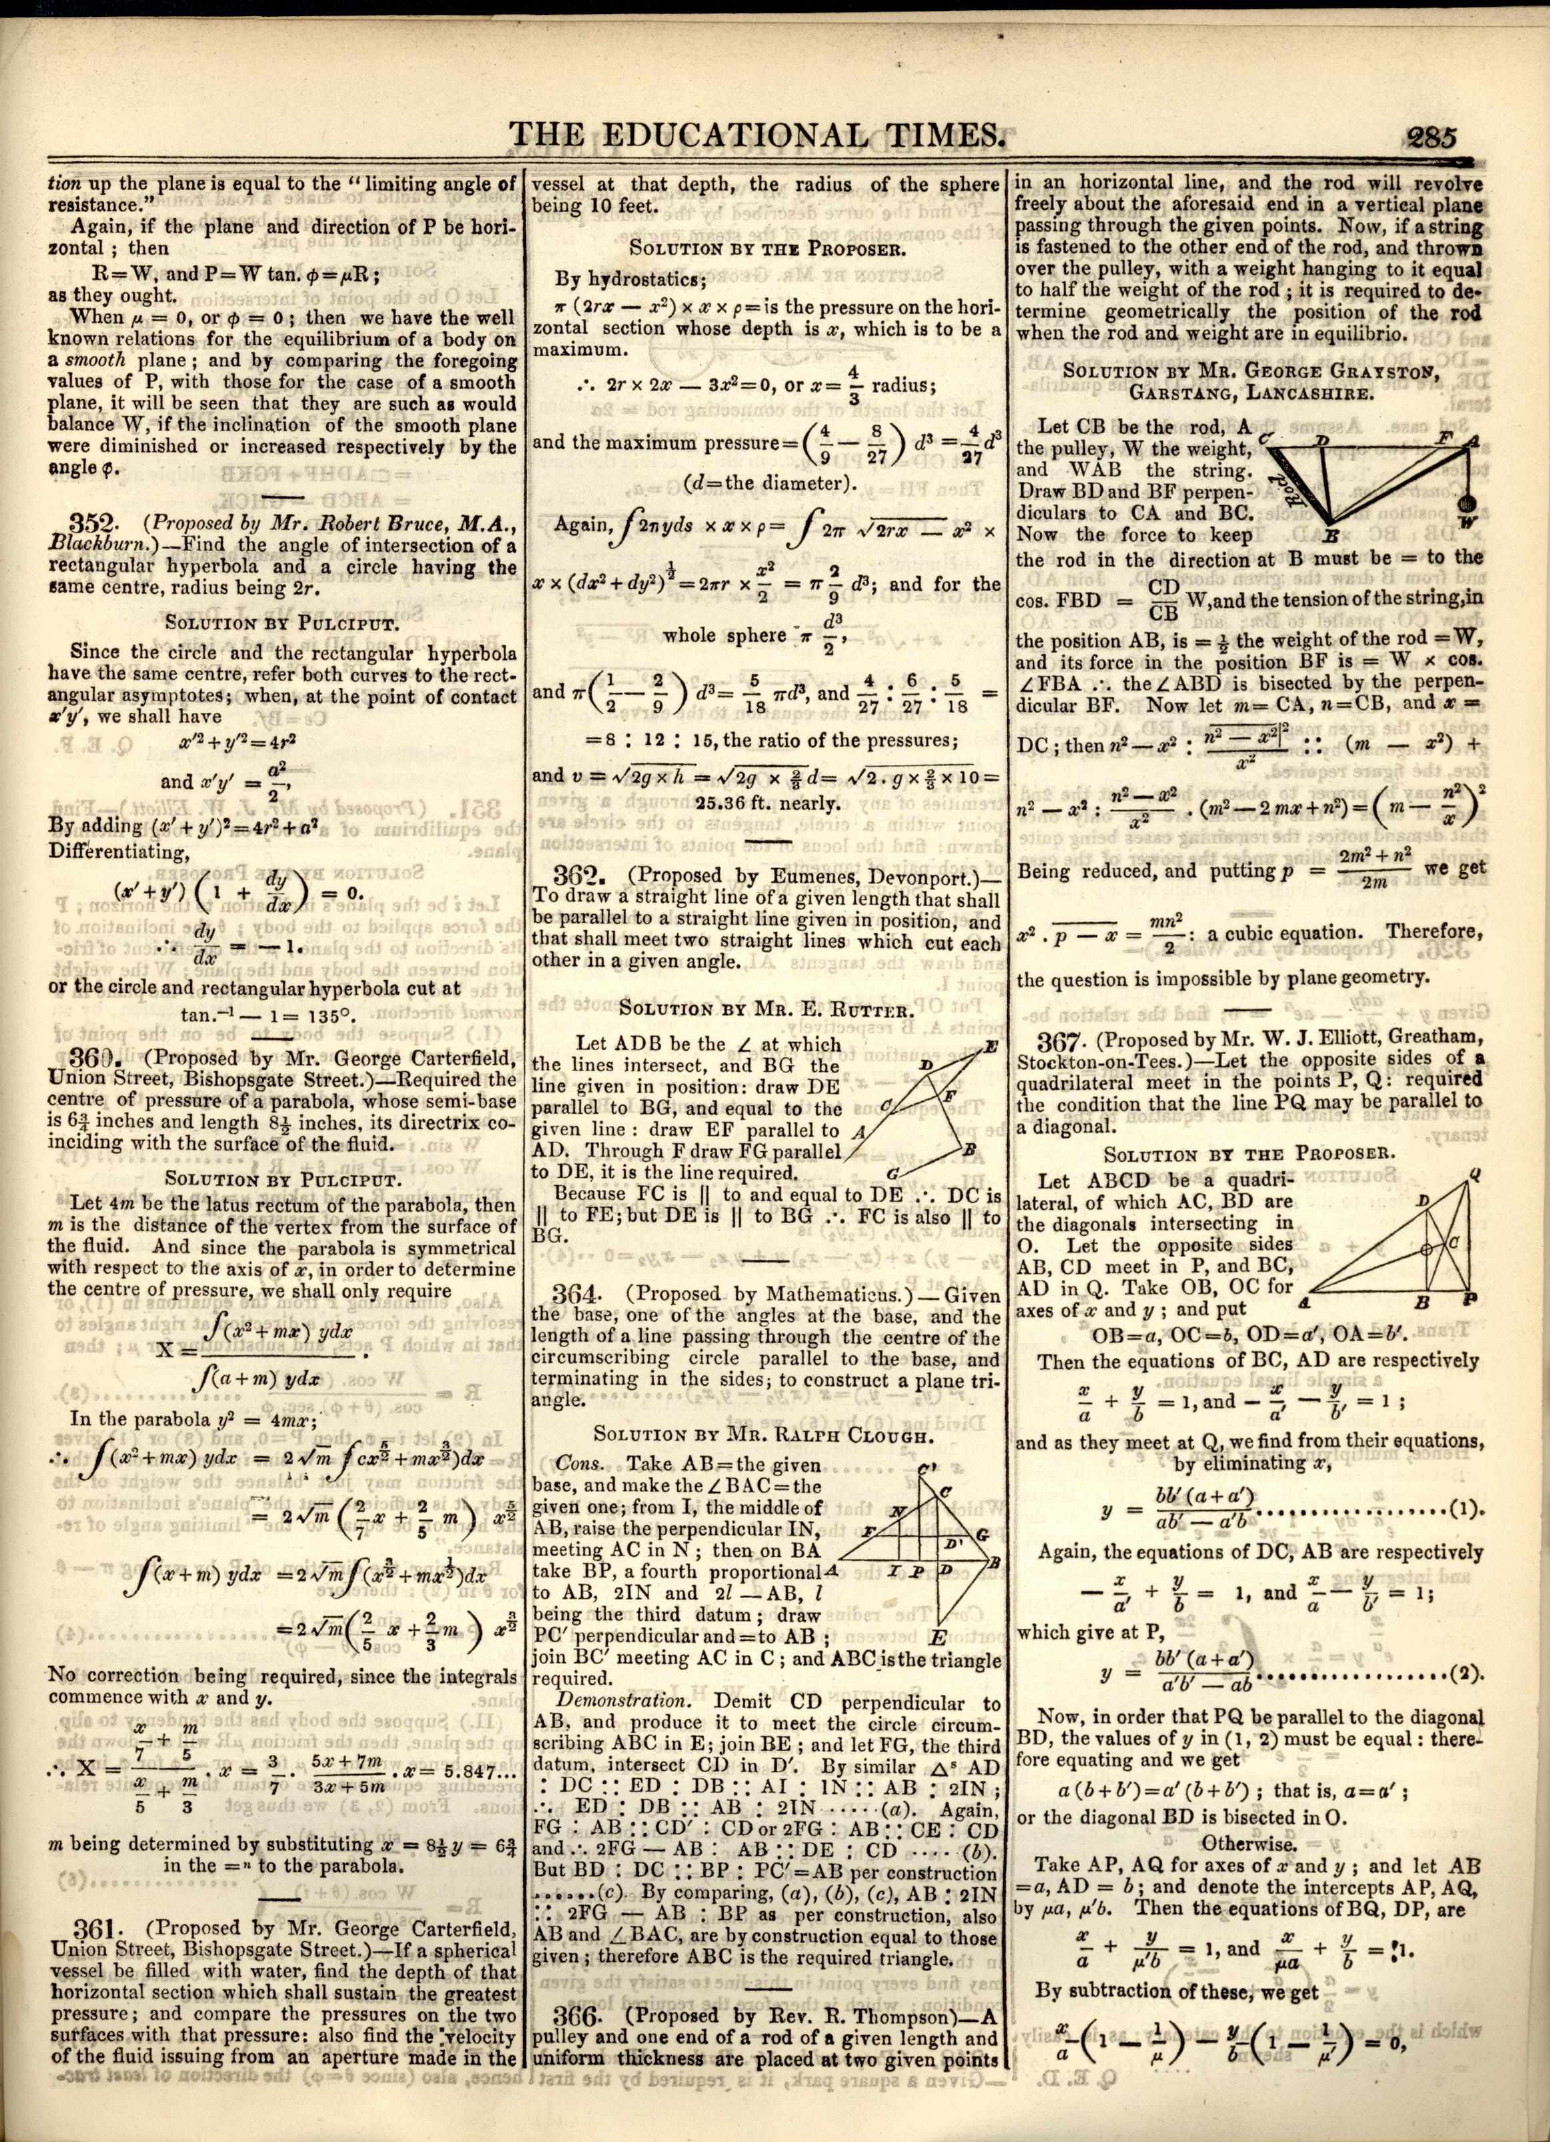 THE EDUCATIONAL TIMES. 285
tion up the plane is equal to the "limiting angle of
resistance."
Again, if the plane and direction of P be hori-
zontal ; then
R=W, and P=W tan. φ=μR ;
as they ought.
When μ = 0, or φ = 0 ; then we have the well
known relations for the equilibrium of a body on
a smooth plane ; and by comparing the foregoing
values of P, with those for the case of a smooth
plane, it will be seen that they are such as would
balance W, if the inclination of the smooth plane
were diminished or increased respectively by the
angle φ.
352. (Proposed by Mr. Robert Bruce, M.A.,
Blackburn.)—Find the angle of intersection of a
rectangular hyperbola and a circle having the
same centre, radius being 2r.
SOLUTION BY PULCIPUT.
Since the circle and the rectangular hyperbola
have the same centre, refer both curves to the rect-
angular asymptotes; when, at the point of contact
x'y', we shall have
x'²+y'²=4r²
and x'y' = a²/2,
By adding (x'+y')²=4r²+a²
Differentiating,
(x'+y') (1 + dy/dx) = 0.
∴ dy/dx = — 1.
or the circle and rectangular hyperbola cut at
tan.⁻¹ — 1= 135°.
360. (Proposed by Mr. George Carterfield,
Union Street, Bishopsgate Street.)—Required the
centre of pressure of a parabola, whose semi-base
is 6¾ inches and length 8½ inches, its directrix co-
inciding with the surface of the fluid.
SOLUTION BY PULCIPUT.
Let 4m be the latus rectum of the parabola, then
m is the distance of the vertex from the surface of
the fluid. And since the parabola is symmetrical
with respect to the axis of x, in order to determine
the centre of pressure, we shall only require
X = ∫(x²+mx) ydx / ∫(a+m) ydx .
In the parabola y² = 4mx;
∴ ∫(x²+mx) ydx = 2√m ∫cx^(5/2)+mx^(3/2))dx
= 2√m (2/7 x + 2/5 m) x^(5/2)
∫(x+m) ydx =2√m∫(x^(3/2)+mx^(1/2))dx
=2√m(2/5 x + 2/3 m) x^(3/2)
No correction being required, since the integrals
commence with x and y.
∴ X = (x/7 + m/5)/(x/5 + m/3) . x = 3/7 . (5x+7m)/(3x+5m) . x= 5.847...
m being determined by substituting x = 8½ y = 6¾
in the =ⁿ to the parabola.
361. (Proposed by Mr. George Carterfield,
Union Street, Bishopsgate Street.)—If a spherical
vessel be filled with water, find the depth of that
horizontal section which shall sustain the greatest
pressure; and compare the pressures on the two
surfaces with that pressure: also find the velocity
of the fluid issuing from an aperture made in the
vessel at that depth, the radius of the sphere
being 10 feet.
SOLUTION BY THE PROPOSER.
By hydrostatics;
π (2rx — x²) × x × ρ=is the pressure on the hori-
zontal section whose depth is x, which is to be a
maximum.
∴ 2r × 2x — 3x²=0, or x= 4/3 radius;
and the maximum pressure=(4/9 — 8/27) d³ = 4/27 d³
(d=the diameter).
Again, ∫2πyds × x × ρ= ∫ 2π √2rx — x² ×
x × (dx²+dy²)^½=2πr × x²/2 = π 2/9 d³; and for the
whole sphere π d³/2,
and π(1/2 — 2/9) d³= 5/18 πd³, and 4/27 : 6/27 : 5/18 =
=8 : 12 : 15, the ratio of the pressures;
and v = √2g×h = √2g × ⅔ d= √2.g×⅔×10=
25.36 ft. nearly.
362. (Proposed by Eumenes, Devonport.)—
To draw a straight line of a given length that shall
be parallel to a straight line given in position, and
that shall meet two straight lines which cut each
other in a given angle.
SOLUTION BY MR. E. RUTTER.
Let ADB be the ∠ at which
the lines intersect, and BG the
line given in position: draw DE
parallel to BG, and equal to the
given line : draw EF parallel to
AD. Through F draw FG parallel
to DE, it is the line required.
E
D
F
C
A
B
G
Because FC is || to and equal to DE ∴ DC is
|| to FE; but DE is || to BG ∴ FC is also || to
BG.
364. (Proposed by Mathematicus.)—Given
the base, one of the angles at the base, and the
length of a line passing through the centre of the
circumscribing circle parallel to the base, and
terminating in the sides; to construct a plane tri-
angle.
SOLUTION BY MR. RALPH CLOUGH.
Cons. Take AB=the given
base, and make the ∠BAC=the
given one; from I, the middle of
AB, raise the perpendicular IN,
meeting AC in N ; then on BA
take BP, a fourth proportional
to AB, 2IN and 2l — AB, l
being the third datum ; draw
PC' perpendicular and=to AB ;
C'
C
N
F
G
D'
A
I P D
B
E
join BC' meeting AC in C ; and ABC is the triangle
required.
Demonstration. Demit CD perpendicular to
AB, and produce it to meet the circle circum-
scribing ABC in E; join BE ; and let FG, the third
datum, intersect CD in D'. By similar △ˢ AD
: DC :: ED : DB :: AI : IN :: AB : 2IN ;
∴ ED : DB :: AB : 2IN ·····(a). Again,
FG : AB :: CD' : CD or 2FG : AB :: CE : CD
and ∴ 2FG — AB : AB :: DE : CD ···· (b).
But BD : DC :: BP : PC'=AB per construction
......(c). By comparing, (a), (b), (c), AB : 2IN
:: 2FG — AB : BP as per construction, also
AB and ∠BAC, are by construction equal to those
given ; therefore ABC is the required triangle.
366. (Proposed by Rev. R. Thompson)—A
pulley and one end of a rod of a given length and
uniform thickness are placed at two given points
in an horizontal line, and the rod will revolve
freely about the aforesaid end in a vertical plane
passing through the given points. Now, if a string
is fastened to the other end of the rod, and thrown
over the pulley, with a weight hanging to it equal
to half the weight of the rod ; it is required to de-
termine geometrically the position of the rod
when the rod and weight are in equilibrio.
SOLUTION BY MR. GEORGE GRAYSTON,
GARSTANG, LANCASHIRE.
Let CB be the rod, A
the pulley, W the weight,
and WAB the string.
Draw BD and BF perpen-
diculars to CA and BC.
Now the force to keep
C D F A
Rod
B
W
the rod in the direction at B must be = to the
cos. FBD = CD/CB W, and the tension of the string, in
the position AB, is = ½ the weight of the rod =W,
and its force in the position BF is = W × cos.
∠FBA ∴ the ∠ABD is bisected by the perpen-
dicular BF. Now let m= CA, n=CB, and x =
DC ; then n²— x² : (n² — x²|²)/x² :: (m — x²) +
n² — x² : (n² — x²)/x² . (m²—2 mx+n²)=(m— n²/x)²
Being reduced, and putting p = (2m²+n²)/2m we get
x² . p — x = mn²/2 : a cubic equation. Therefore,
the question is impossible by plane geometry.
367. (Proposed by Mr. W. J. Elliott, Greatham,
Stockton-on-Tees.)—Let the opposite sides of a
quadrilateral meet in the points P, Q: required
the condition that the line PQ may be parallel to
a diagonal.
SOLUTION BY THE PROPOSER.
Let ABCD be a quadri-
lateral, of which AC, BD are
the diagonals intersecting in
O. Let the opposite sides
AB, CD meet in P, and BC,
AD in Q. Take OB, OC for
axes of x and y ; and put
Q
D
C
A
B
P
OB=a, OC=b, OD=a', OA=b'.
Then the equations of BC, AD are respectively
x/a + y/b = 1, and — x/a' — y/b' = 1 ;
and as they meet at Q, we find from their equations,
by eliminating x,
y = bb' (a+a')/(ab' — a'b)..................(1).
Again, the equations of DC, AB are respectively
— x/a' + y/b = 1, and x/a — y/b' = 1;
which give at P,
y = bb' (a+a')/(a'b' — ab)..................(2).
Now, in order that PQ be parallel to the diagonal
BD, the values of y in (1, 2) must be equal : there-
fore equating and we get
a (b+b')=a' (b+b') ; that is, a=a' ;
or the diagonal BD is bisected in O.
Otherwise.
Take AP, AQ for axes of x and y ; and let AB
=a, AD = b ; and denote the intercepts AP, AQ,
by μa, μ'b. Then the equations of BQ, DP, are
x/a + y/μ'b = 1, and x/μa + y/b = 1.
By subtraction of these, we get
x/a (1 — 1/μ) — y/b (1 — 1/μ') = 0,